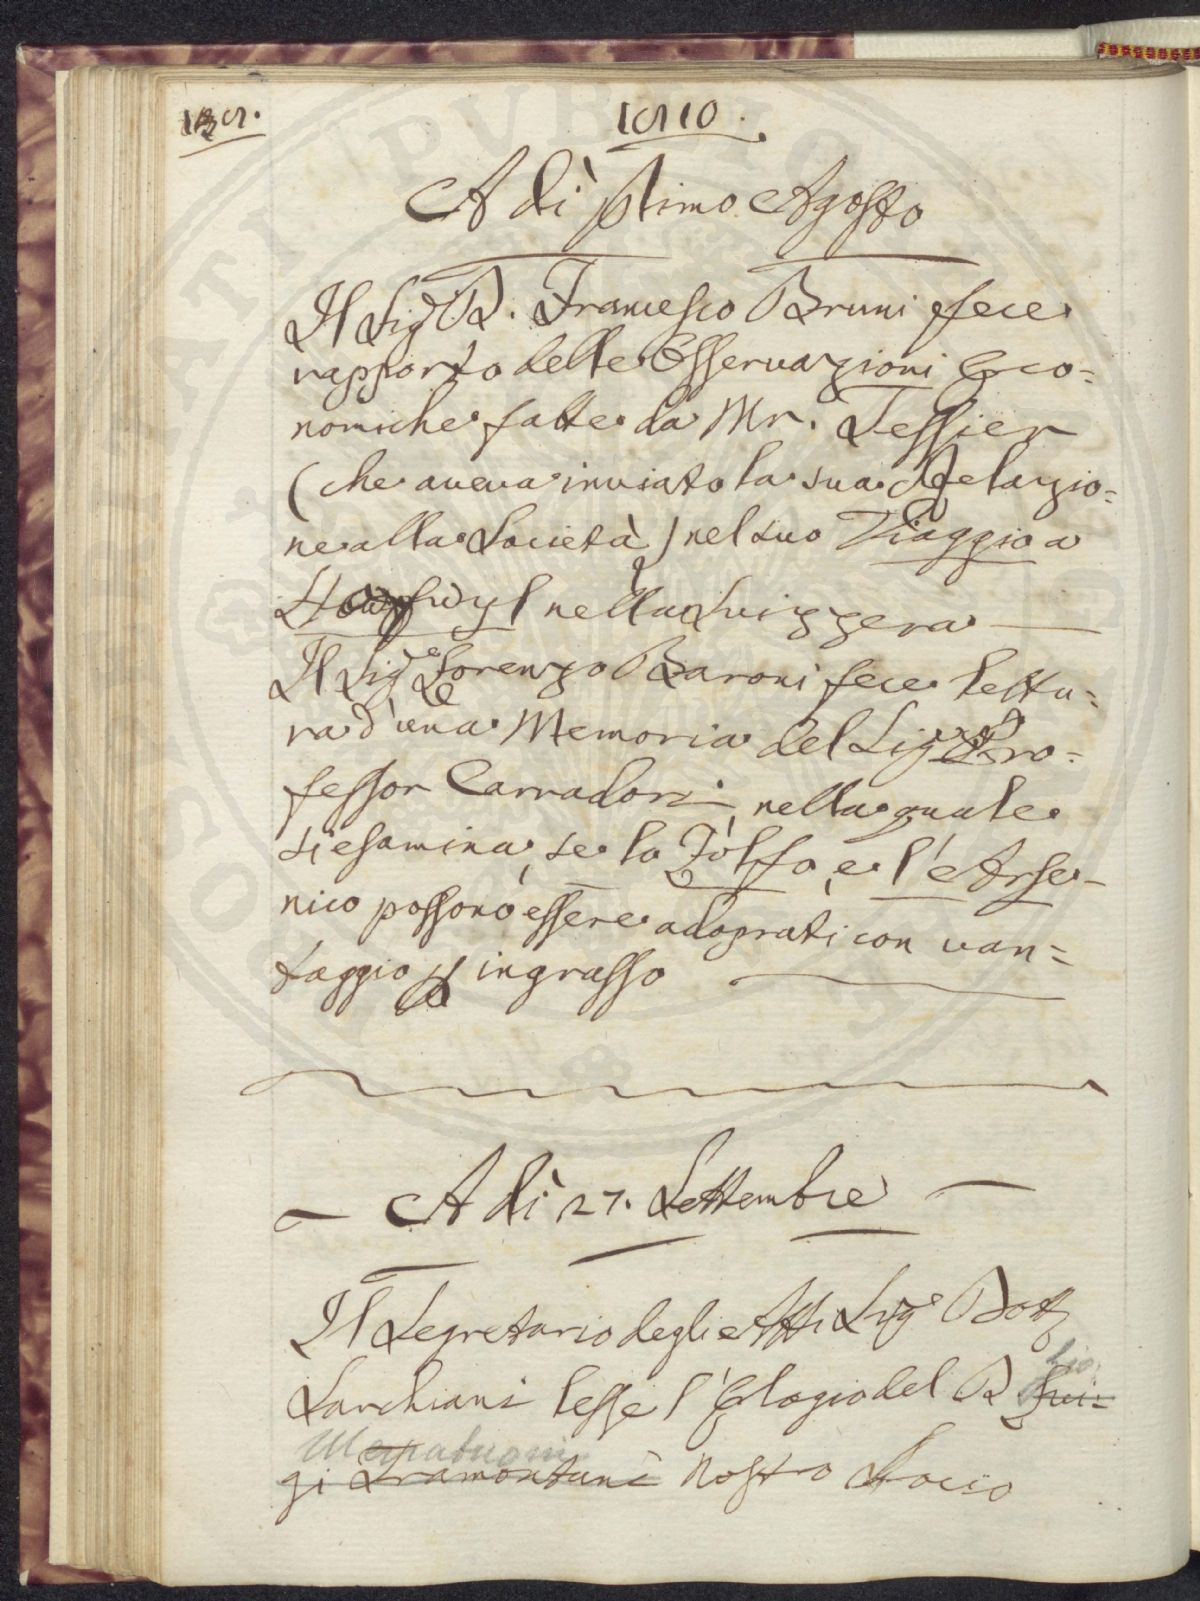 1810.
A dì primo Agosto
Il Sig.r D. Francesco Bruni fece
rapporto delle Osservazioni Eco=
nomiche fatte da Mr. Tessier
(che aveva inviato la sua Relazio=
ne alla Società) nel suo Viaggio a
Hofwyl nella Svizzera
Il Sig.e Lorenzo Baroni fece lettu=
ra d'una Memoria del Sig.r Pro=
fessor Carradori, nella quale
si esamina, se lo Zolfo, e l'Arse=
nico possono essere adoprati con van=
taggio p ingrasso
A dì 27. Settembre
Il Segretario degli Atti Sig.e Dott
Sarchiani lesse l'Elogio del D Lui=
gi Tramontani nostro Socio